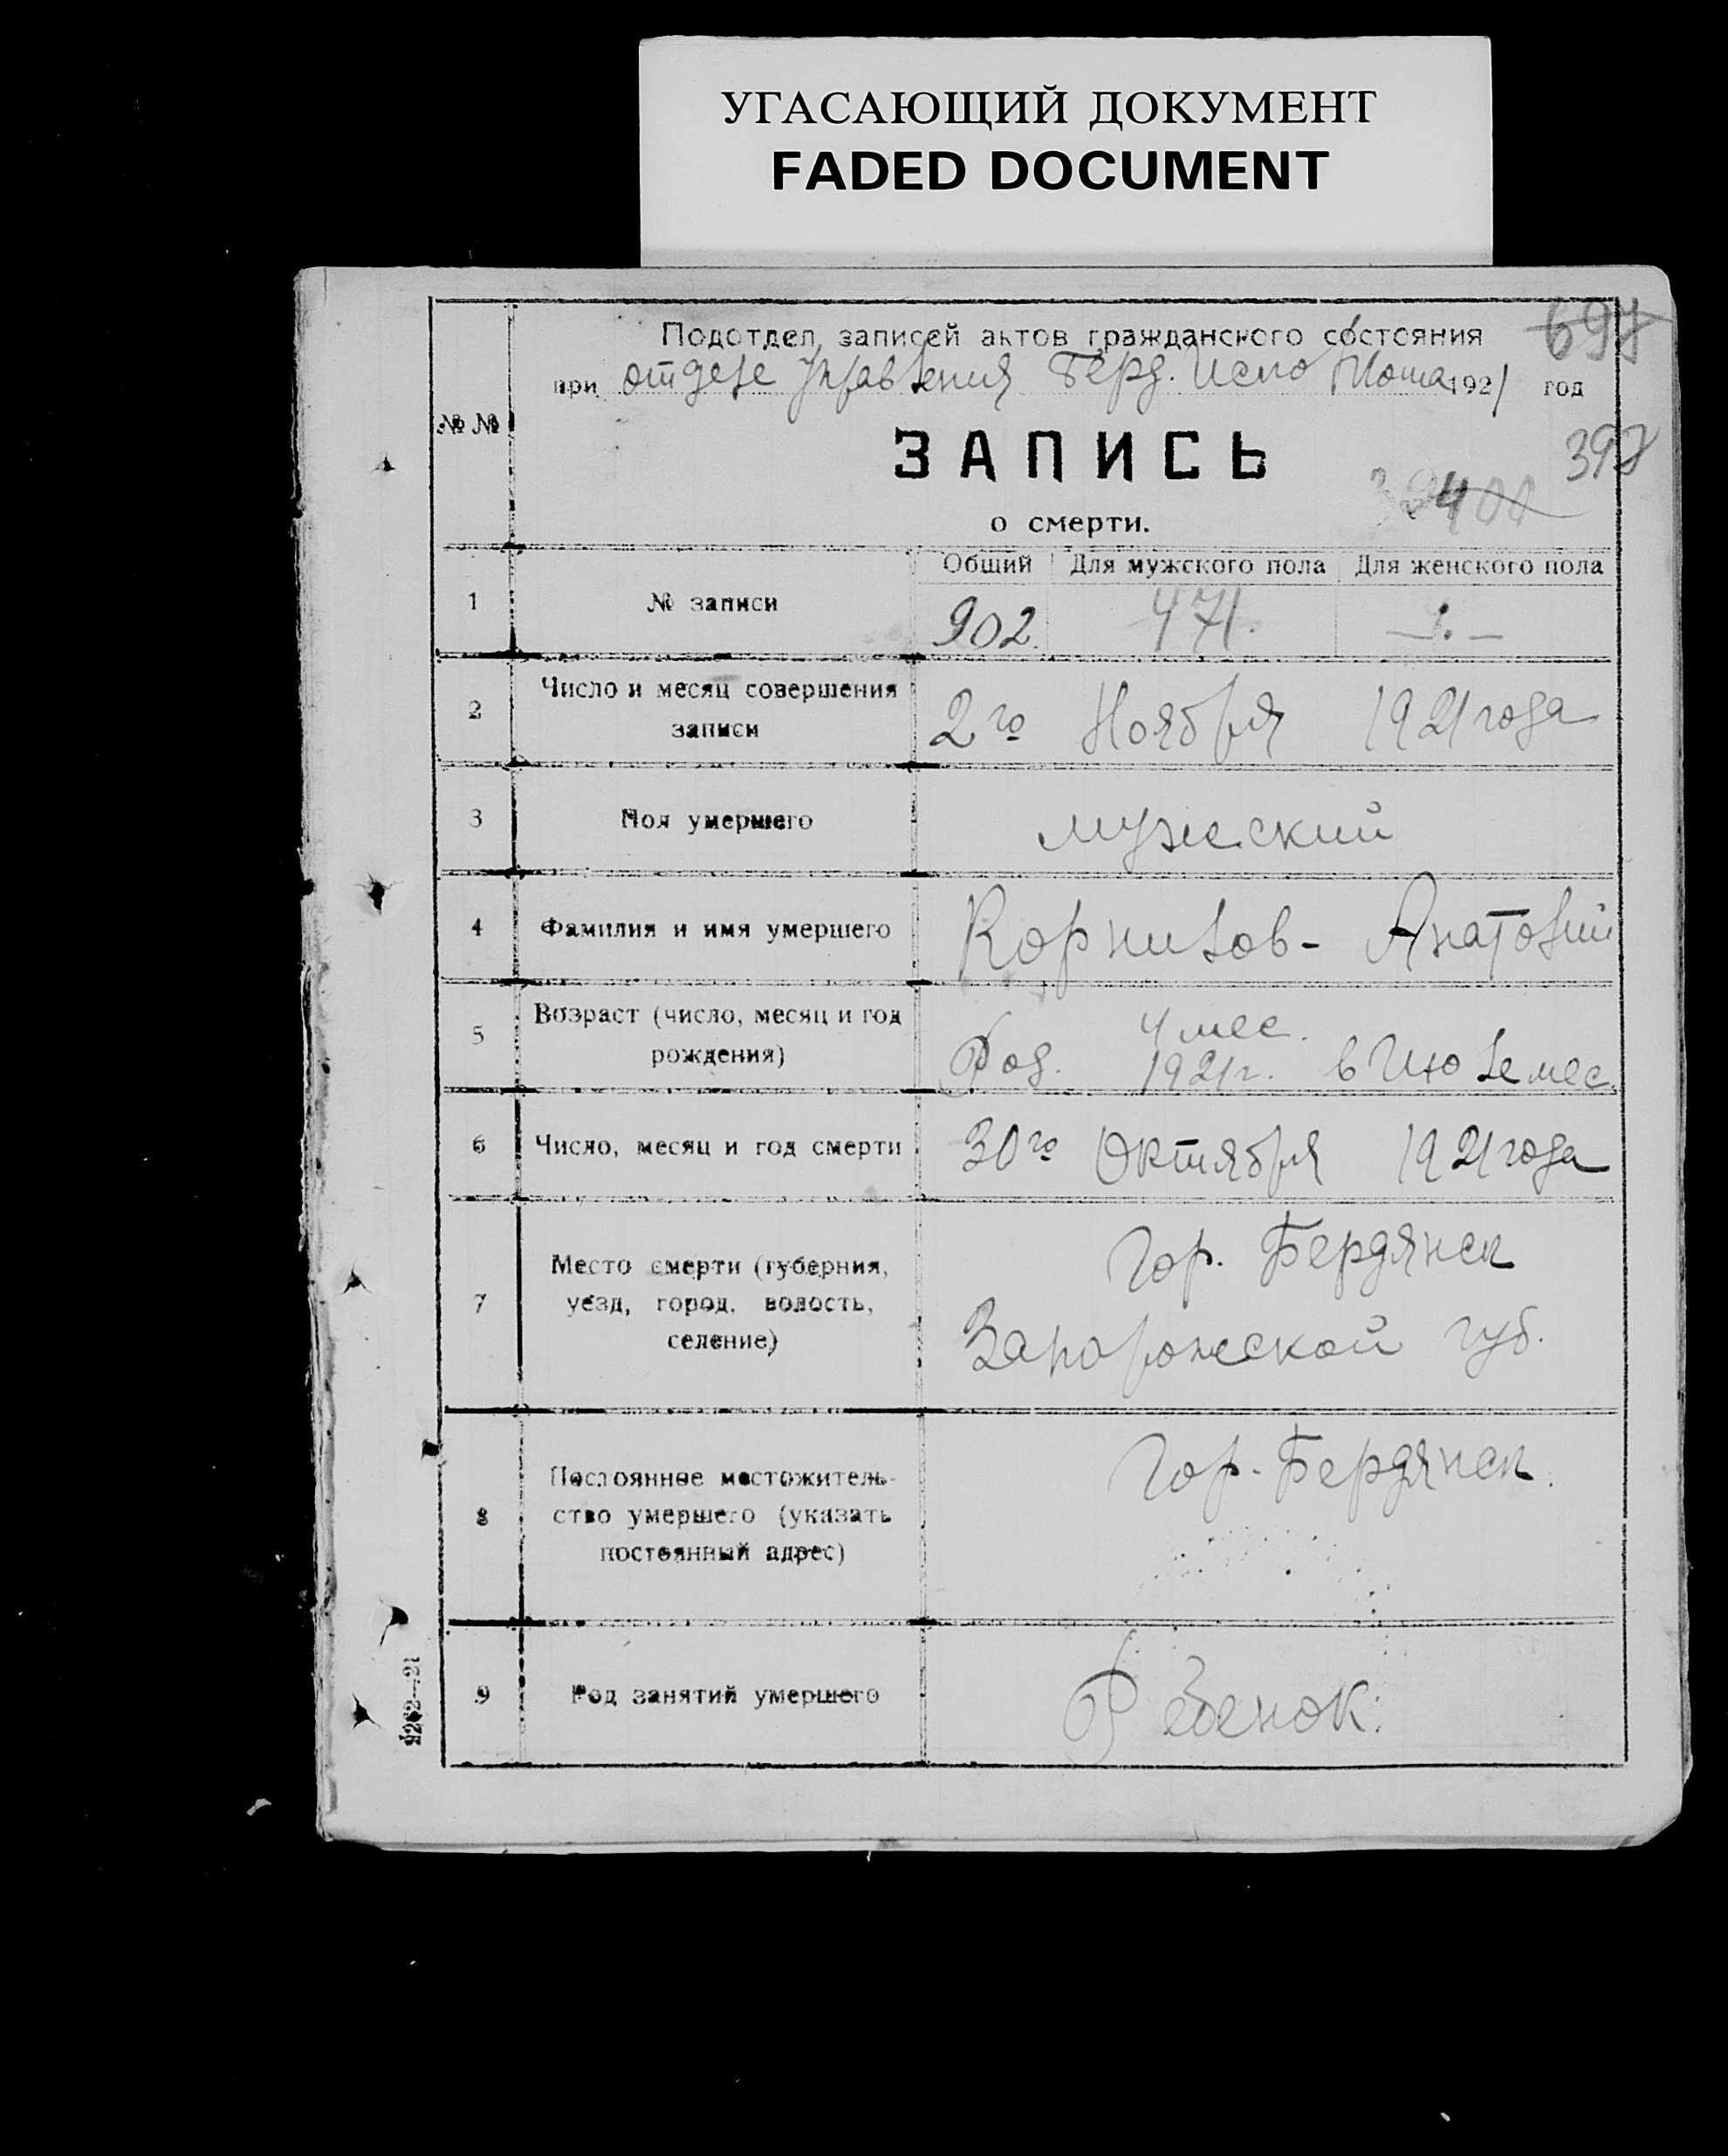 УГАСАЮЩИЙ ДОКУМЕНТ
FADED DOCUMENT
Подотдел записей актов гражданского состояния
697
при отделе Управления Берд. Исполкома 1921 год
№ №
ЗАПИСЬ
397
400
о смерти.
Общий Для мужского пола Для женского пола
1 № записи 902. 471. —:—
2 Число и месяц совершения
записи
2го Ноября 1921 года
3 Пол умершего мужеский
4 Фамилия и имя умершего Корнилов - Анатолий
5 Возраст (число, месяц и год
рождения)
4 мес.
Род. 1921 г. в Июле мес.
6 Число, месяц и год смерти 30го Октября 1921 года
7 Место смерти (губерния,
уезд, город, волость,
селение)
Гор. Бердянск
Запорожской губ.
8 Постоянное местожитель-
ство умершего (указать
постоянный адрес)
Гор. Бердянск.
9 Род занятий умершего Ребенок.